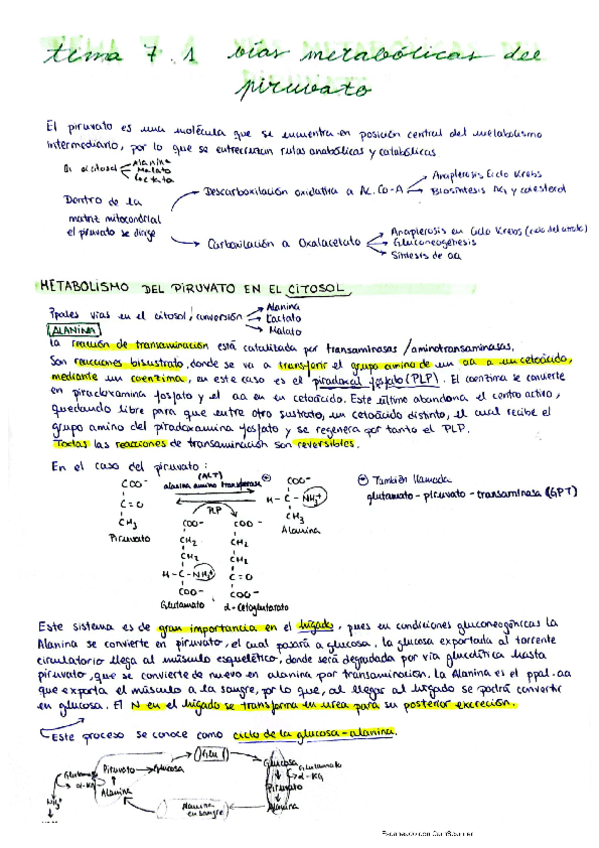 tema 7.1 bías metabólicas del
piruvato
El piruvato es una molécula que se encuentra en posición central del metabolismo
intermediario, por lo que se entrecruzan rutas anabólicas y catabólicas
En citosol
Alanina
Malato
Lactato
Dentro de la
matriz mitocondrial
el piruvato se dirige
Descarboxilación oxidativa a Ac. Co-A
Anaplerosis Ciclo Krebs
Biosíntesis AG y colesterol
Carboxilación a Oxalacetato
Anaplerosis en Ciclo Krebs (ciclo del citrato)
Gluconeogénesis
Síntesis de aa
METABOLISMO DEL PIRUVATO EN EL CITOSOL
Ppales vías en el citosol, conversión
Alanina
Lactato
Malato
ALANINA
La reacción de transaminación está catalizada por transaminasas /aminotransaminasas.
Son reacciones bisustrato, donde se va a transferir el grupo amino de un aa a un cetoácido,
mediante un coenzima, en este caso es el piradoxal fosfato (PLP). El coenzima se convierte
en piradoxamina fosfato y el aa en su cetoácido. Este último abandona el centro activo,
quedando libre para que entre otro sustrato, un cetoácido distinto, el cual recibe el
grupo amino del piradoxamina fosfato y se regenera por tanto el PLP.
Todas las reacciones de transaminación son reversibles.
En el caso del piruvato:
COO-
C=O
CH3
Piruvato
(ALT)
alanina amino transferasa
PLP
COO-
H-C-NH3+
CH3
Alanina
También llamada
glutamato-piruvato-transaminasa (GPT)
COO-
CH2
CH2
H-C-NH3+
COO-
Glutamato
COO-
CH2
CH2
C=O
COO-
α-Cetoglutarato
Este sistema es de gran importancia en el hígado, pues en condiciones gluconeogénicas la
Alanina se convierte en piruvato, el cual pasará a glucosa. La glucosa exportada al torrente
circulatorio llega al músculo esquelético, donde será degradada por vía glucolítica hasta
piruvato, que se convierte de nuevo en alanina por transaminación. La Alanina es el ppal. aa
que exporta el músculo a la sangre, por lo que, al llegar al hígado se podrá convertir
en glucosa. El N en el hígado se transforma en urea para su posterior excreción.
Este proceso se conoce como ciclo de la glucosa-alanina.
Glutamato
α-KG
NH4+
Piruvato
Glucosa
Alanina
Glu
Alanina
en sangre
Glucosa
Glutamato
α-KG
Piruvato
Alanina